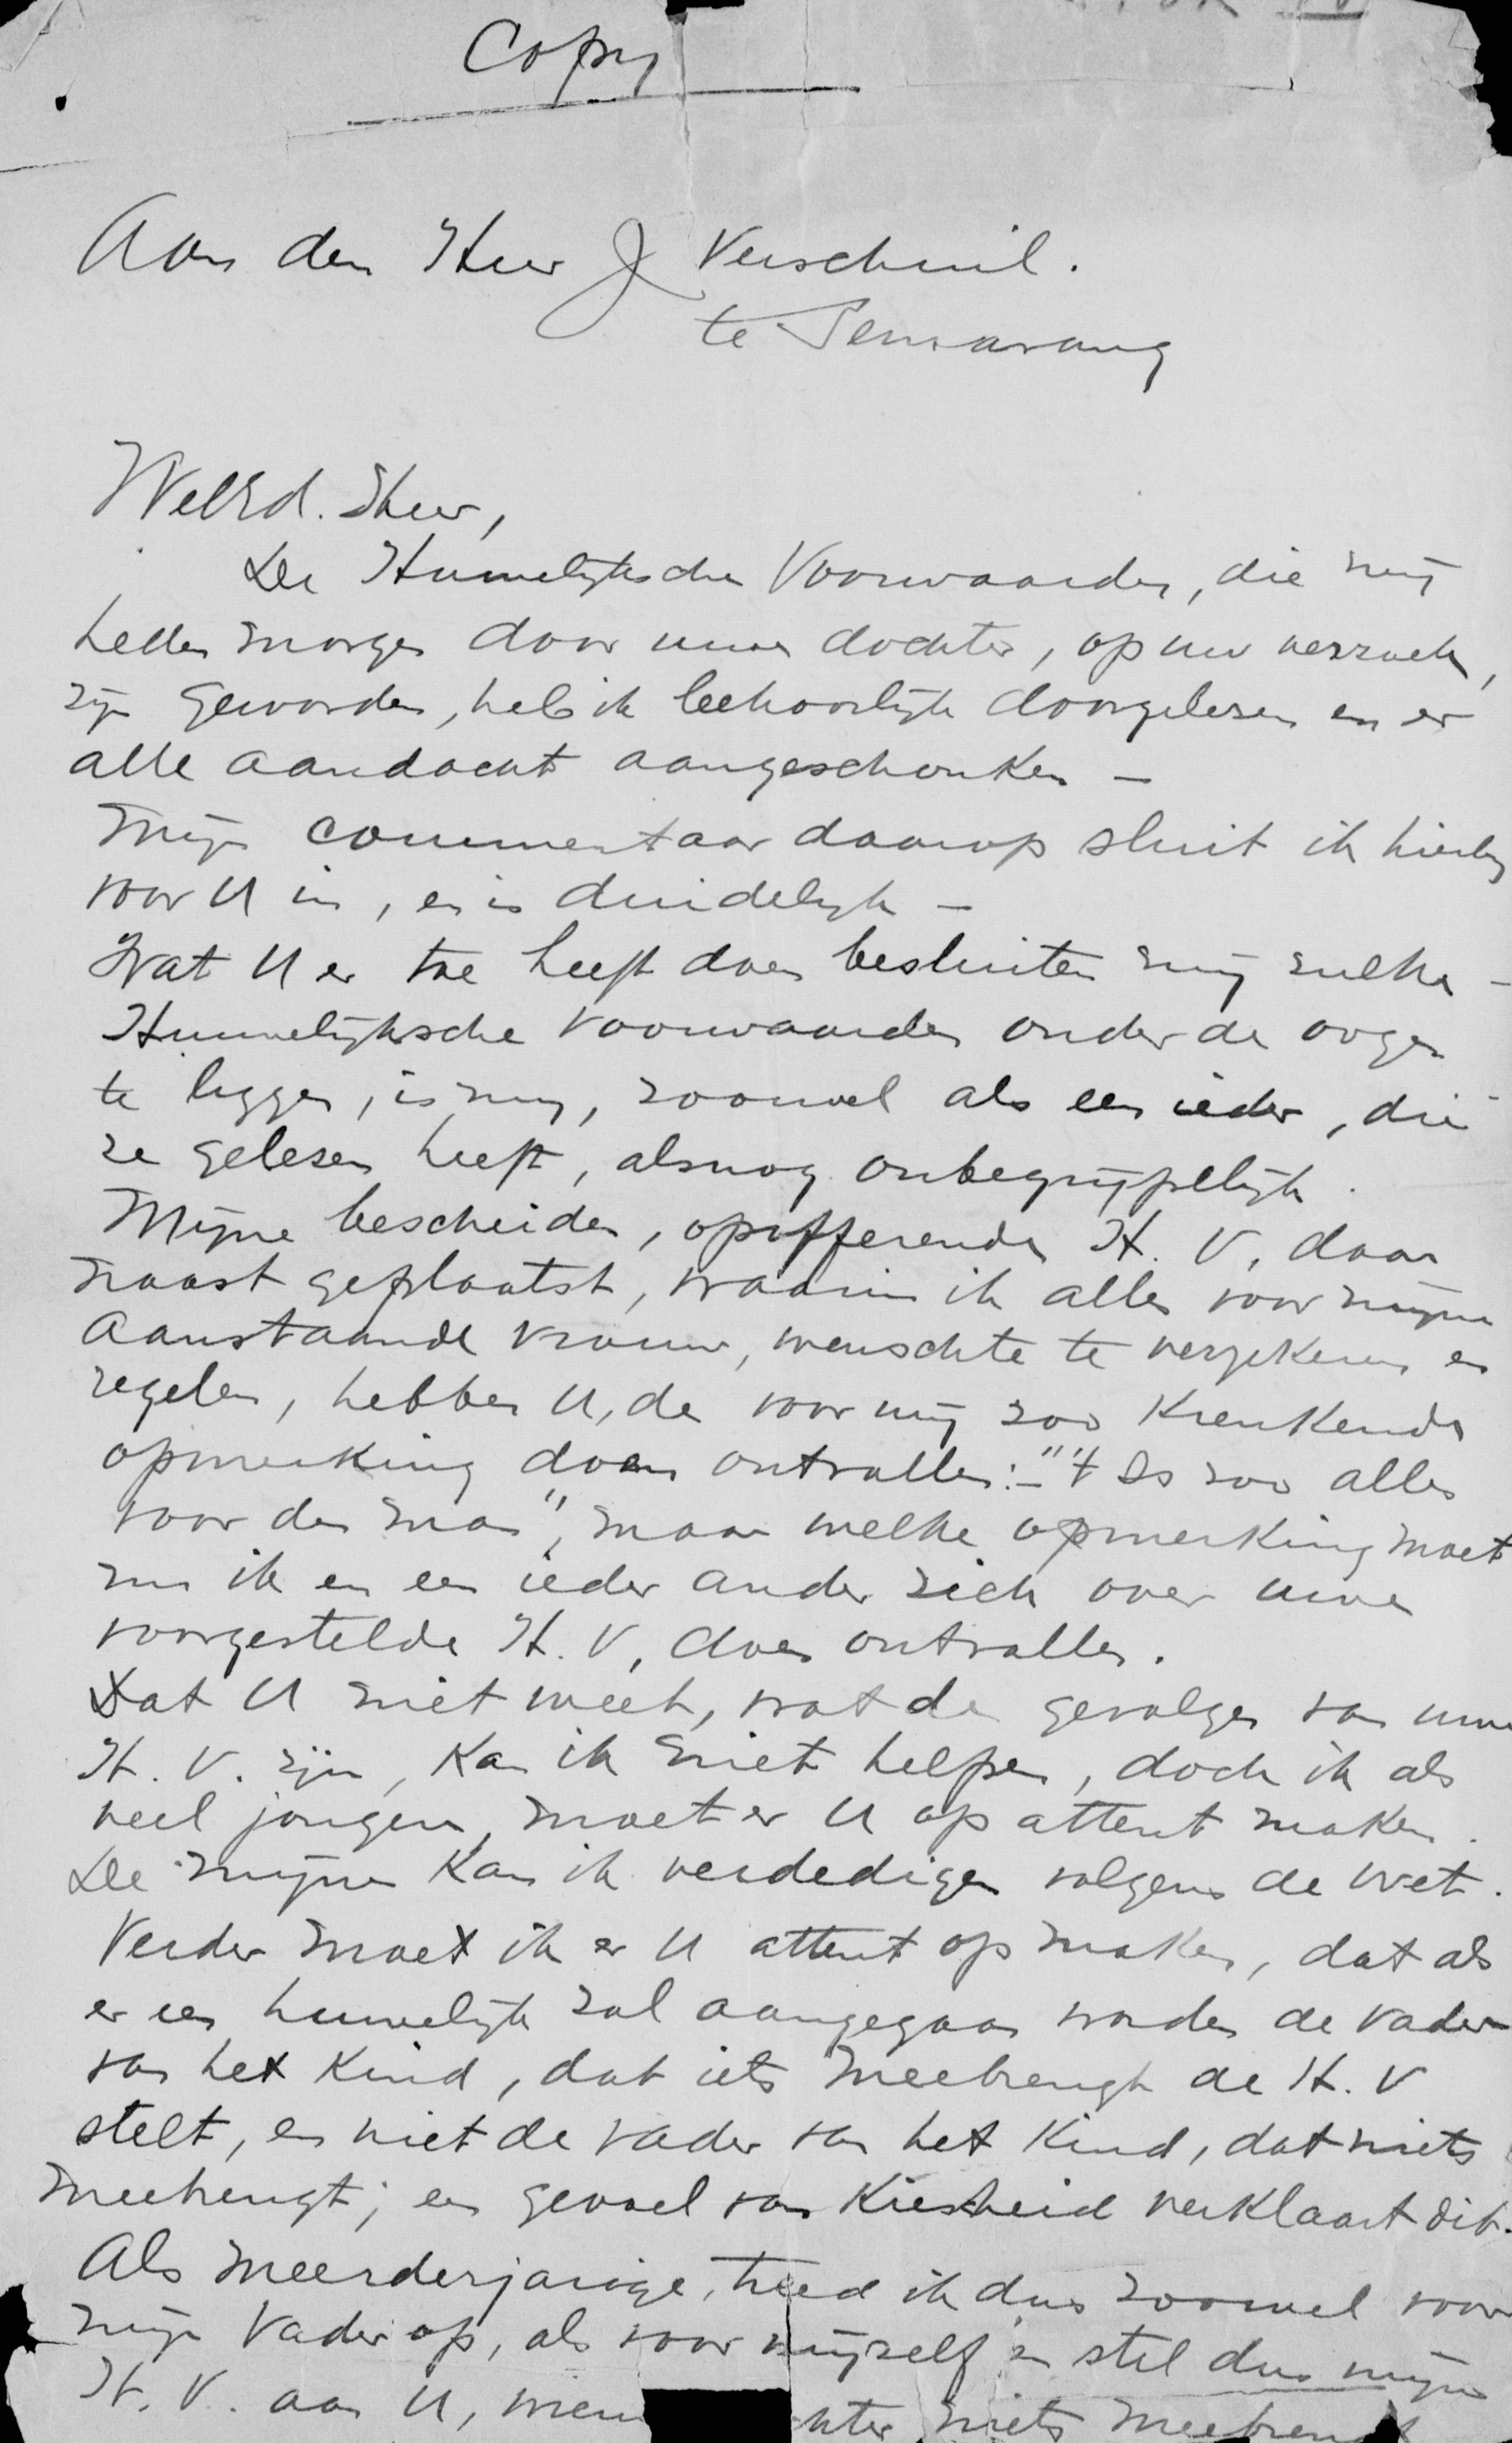 Copy
Aan den Heer J Verschuil.
te Semarang
WelEd. Heer,
De Huwelijksche Voorwaarden, die mij
heden morgen door uwe dochter, op uw verzoek,
zijn geworden, heb ik behoorlijk doorgelezen en er
alle aandacht aangeschonken —
Mijn commentaar daarop sluit ik hierbij
voor U in, en is duidelijk —
Wat U er toe heeft doen besluiten mij zulke —
Huwelijksche Voorwaarden onder de oogen
te leggen, is mij, zoowel als een ieder, die
ze gelezen heeft, alsnog onbegrijpelijk.
Mijne bescheiden, opofferende H. V. daar
naast geplaatst, waarin ik alles voor mijne
aanstaande vrouw, wenschte te verzekeren en
regelen, hebben U, de voor mij zoo krenkende
opmerking doen ontvallen:— "'t Is zoo alles
voor den man", maar welke opmerking moet
nu ik en een ieder ander zich over uwe
voorgestelde H. V. doen ontvallen.
Dat U niet weet, wat de gevolgen van uwe
H. V. zijn, kan ik niet helpen, doch ik als
veel jongere, moet er U op attent maken.
De mijne kan ik verdedigen volgens de wet.
Verder moet ik er U attent op maken, dat als
er een huwelijk zal aangegaan worden de vader
van het kind, dat iets meebrengt de H. V
stelt, en niet de vader van het kind, dat niets
meebrengt; een gevoel van kiesheid verklaart dit.
Als meerderjarige, treed ik dus zoowel voor
mijn Vader op, als voor mijzelf en stel dus mijne
H. V. aan U, niets meebrengt